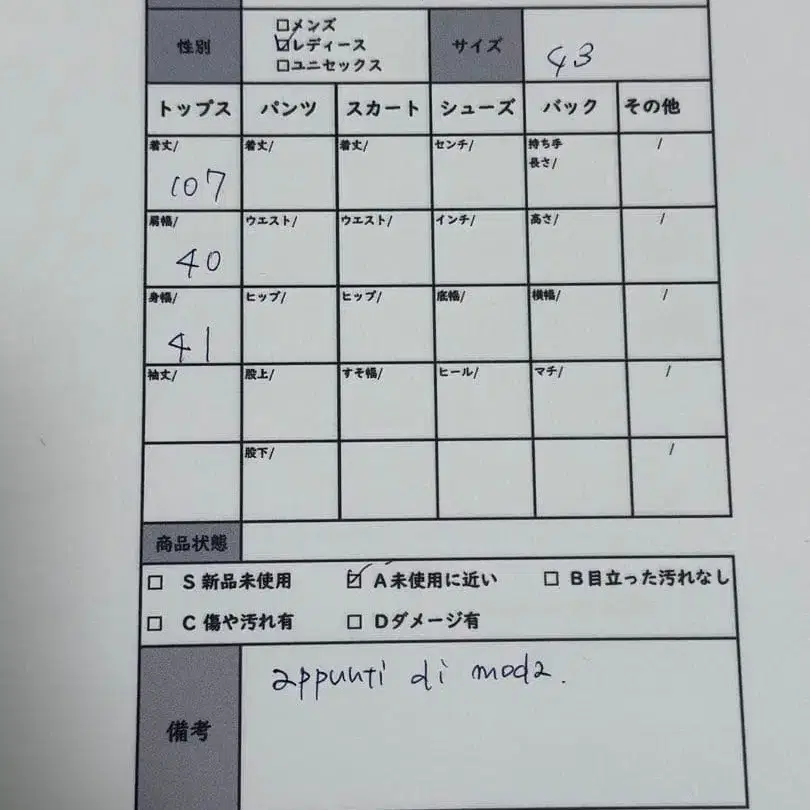 性別
□メンズ
☑レディース
□ユニセックス
サイズ
43
トップス パンツ スカート シューズ バック その他
着丈/ 着丈/ 着丈/ センチ/ 持ち手 /
長さ/
107
肩幅/ ウエスト/ ウエスト/ インチ/ 高さ/ /
40
身幅/ ヒップ/ ヒップ/ 底幅/ 横幅/ /
41
袖丈/ 股上/ すそ幅/ ヒール/ マチ/ /
股下/ /
商品状態
□ S 新品未使用 ☑ A未使用に近い □ B目立った汚れなし
□ C 傷や汚れ有 □ Dダメージ有
備考
appunti di moda.